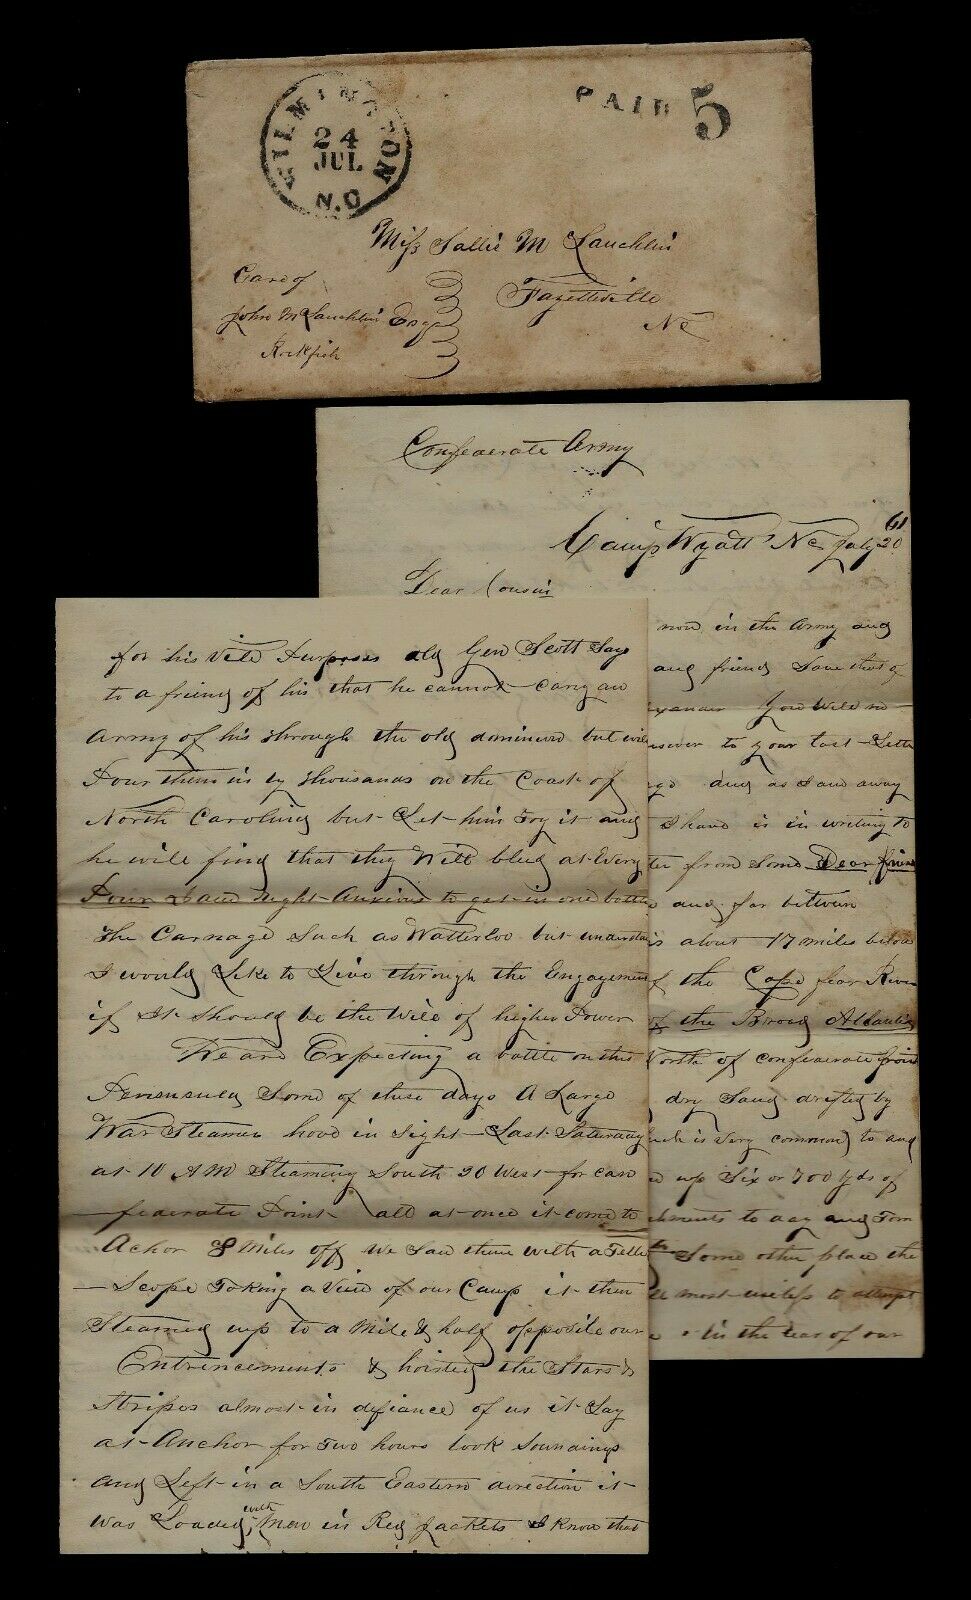 WILMINGTON
24
JUL
N.C
PAID 5
Miss Sallie McLauchlin
Fayetteville
NC
Care of
John McLauchlin Esqr
Rockfish
Confederate Army
61
Camp Wyatt NC July 20
Dear Cousin
now in the Army and
and friend Save that of
You will
answer to your last Lette
ago and as I am away
I have is in writing to
from Some Dear friend
and far between
is about 17 miles below
of the Cape fear River
of the Broad Atlantic
North of confederate Point
dry Sand drifted by
is very common) to and
up Six or 700 yds of
to day and Tom
Some other place the
most useless to attempt
in the rear of our
for his Vile Purposes old Gen Scott Says
to a friend of his that he cannot cary an
Army of his through the old dominion but will
Pour them in by thousands on the Coast of
North Carolina but Let him Try it and
he will find that they Will bleed at Every
Pour I am right Anxious to get in one battle
the Carnage Such as Watterloo but understan
I would Like to Live through the Engagement
if it Should be the Will of higher Power
We are Expecting a battle on this
Penensula Some of these days A Large
War Steamer hove in Sight Last Saturday
at 10 AM Steaming South 20 West for Con
federate Point all at once it come to
Achor 8 Miles off we Saw them with a Telle
Scope Taking a View of our Camp it then
Steamed up to a Mile & half opposite our
Entrencements & hoisted the Stars &
Stripes almost in defiance of us it Lay
at Anchor for Two hours took Soundings
and Left in a South Eastern direction it
was Loaded with Men in Red Jackets I Know that